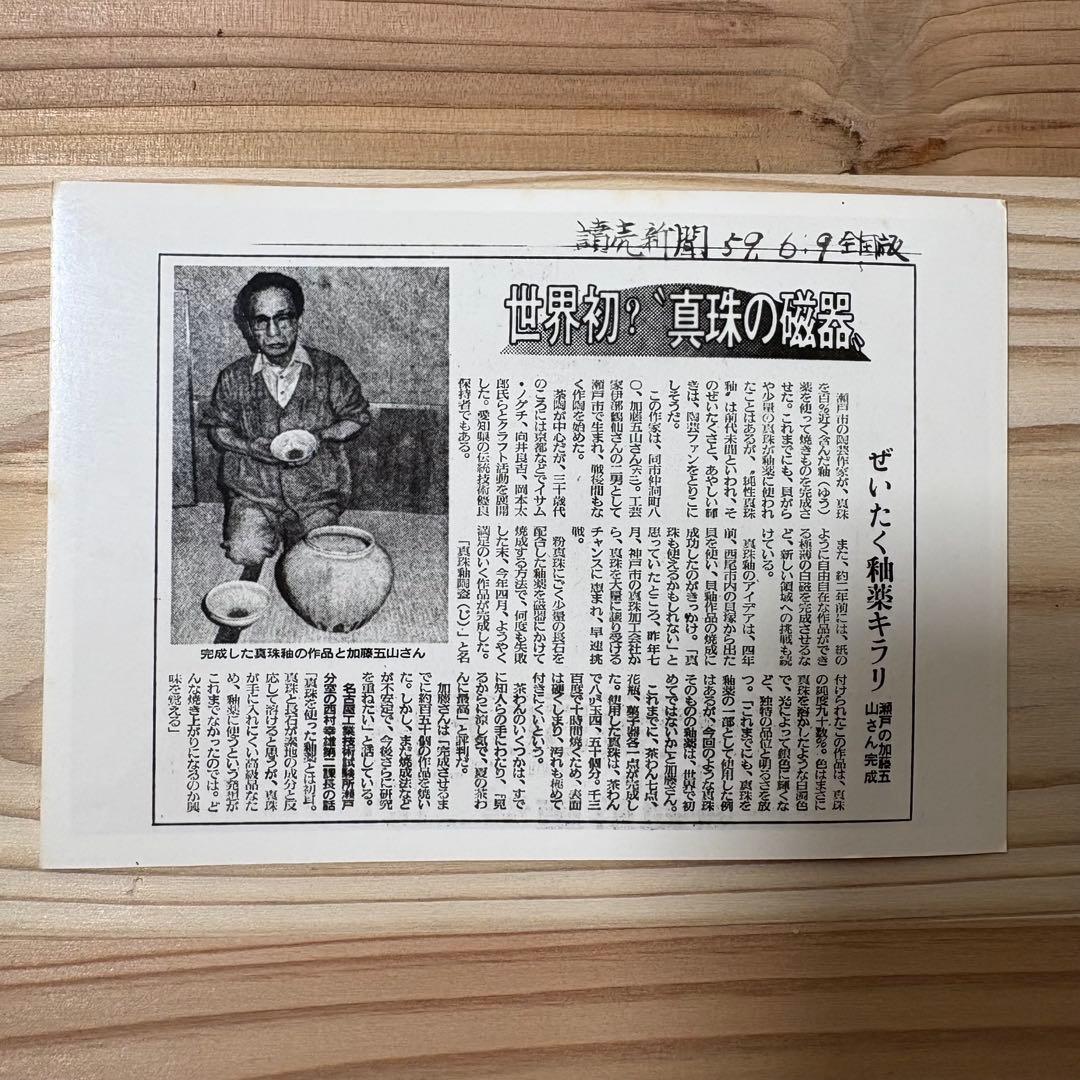 讀売新聞 59. 6. 9 全国版
世界初?〝真珠の磁器〟
ぜいたく釉薬キラリ
瀬戸の加藤五
山さん完成
瀬戸市の陶芸作家が、真珠
を百%近く含んだ釉(ゆう)
薬を使って焼きものを完成さ
せた。これまでにも、貝がら
や少量の真珠が釉薬に使われ
たことはあるが、〝純性真珠
釉〟は前代未聞といわれ、そ
のぜいたくさと、あやしい輝
きは、陶芸ファンをとりこに
しそうだ。
この作家は、同市仲洞町八
〇、加藤五山さん
家伊部鶴仙さんの二男として
瀬戸市で生まれ、戦後間もな
く作陶を始めた。
茶陶が中心だが、三十歳代
のころには京都などでイサム
・ノグチ、向井良吉、岡本太
郎氏らとクラフト活動を展開
した。愛知県の伝統技術優良
保持者でもある。
また、約二年前には、紙の
ように自由自在な作品ができ
る極薄の白磁を完成させるな
ど、新しい領域への挑戦も続
けている。
真珠釉のアイデアは、四年
前、西尾市内の貝塚から出た
貝を使い、貝釉作品の焼成に
成功したのがきっかけ。「真
珠も使えるかもしれない」と
思っていたところ、昨年七
月、神戸市の真珠加工会社か
ら、真珠を大量に譲り受ける
チャンスに恵まれ、早速挑
戦。
粉真珠にごく少量の長石を
配合した釉薬を磁器にかけて
焼成する方法で、何度も失敗
した末、今年四月、ようやく
満足のいく作品が完成した。
「真珠釉陶瓷(じ)」と名
付けられたこの作品は、真珠
の純度九十数%。色はまさに
真珠を溶かしたような白濁色
で、光によって銀色に輝くな
ど、独特の品位と明るさを放
つ。「これまでにも、真珠を
釉薬の一部として使用した例
はあるが、今回のような真珠
そのものの釉薬は、世界で初
めてではないか」と加藤さん。
これまでに、茶わん七点、
花瓶、菓子器各一点が完成し
た。使用した真珠は、茶わん
で八ダ玉四、五十個分。千三
百度で十時間焼くため、表面
は硬くしまり、汚れも極めて
付きにくいという。
茶わんのいくつかは、すで
に知人らの手にわたり、「見
るからに涼し気で、夏の茶わ
んに最高」と評判だ。
加藤さんは「完成させるま
でに約百五十個の作品を焼い
た。しかし、まだ焼成法など
が不安定で、今後さらに研究
を重ねたい」と話している。
名古屋工業技術試験所瀬戸
分室の西村幸雄第二課長の話
「真珠を使った釉薬とは初耳。
真珠と長石が素地の成分と反
応して溶けると思うが、真珠
が手に入れにくい高級品なた
め、釉薬に使うという発想が
これまでなかったのでは。ど
んな焼き上がりになるのか興
味を覚える」
完成した真珠釉の作品と加藤五山さん